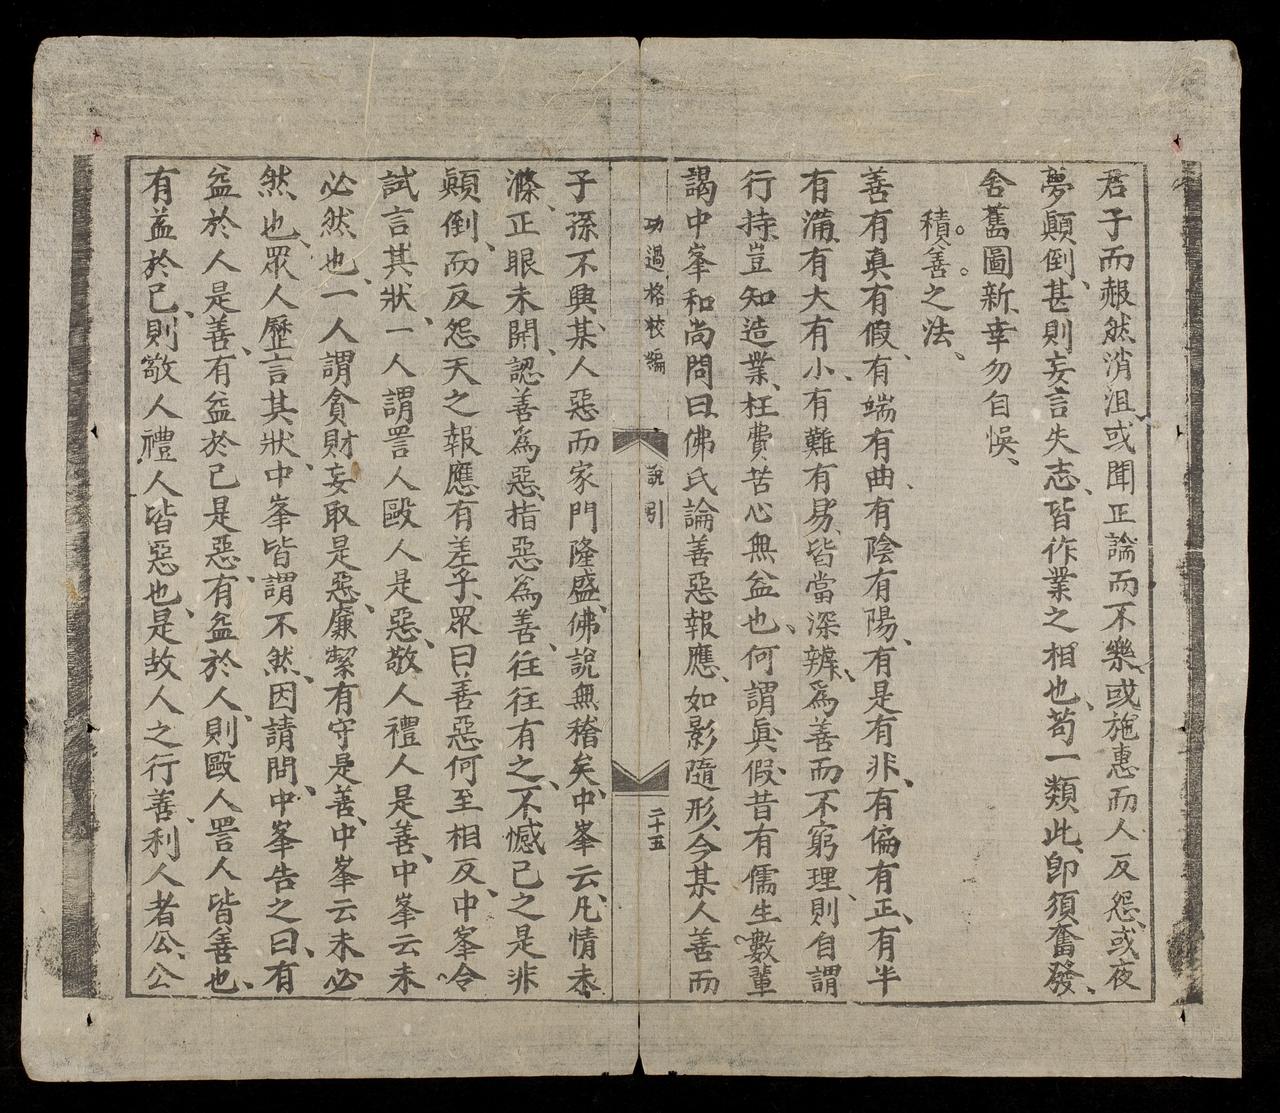 君子而赧然消沮或聞正論而不樂、或施惠而人反怨、或夜
夢顛倒、甚則妄言失志、皆作業之相也、苟一類此、即須奮發、
舍舊圖新、幸勿自悞、
積善之法、
善有真有假、有端有曲、有陰有陽、有是有非、有偏有正、有半
有滿、有大有小、有難有易、皆當深辨、為善而不窮理、則自謂
行持、豈知造業、枉費苦心無益也、何謂真假、昔有儒生數輩
謁中峯和尚問曰、佛氏論善惡報應、如影隨形、今某人善而
功過格校編
說引
二十五
子孫不興、某人惡而家門隆盛、佛說無稽矣、中峯云、凡情未
滌、正眼未開、認善為惡、指惡為善、往往有之、不憾己之是非
顛倒、而反怨天之報應有差乎、眾曰、善惡何至相反、中峯令
試言其狀、一人謂詈人毆人是惡、敬人禮人是善、中峯云、未
必然也、一人謂貪財妄取是惡、廉潔有守是善、中峯云、未必
然也、眾人歷言其狀、中峯皆謂不然、因請問、中峯告之曰、有
益於人是善、有益於己是惡、有益於人、則毆人詈人皆善也、
有益於己、則敬人禮人皆惡也、是故人之行善、利人者公、公